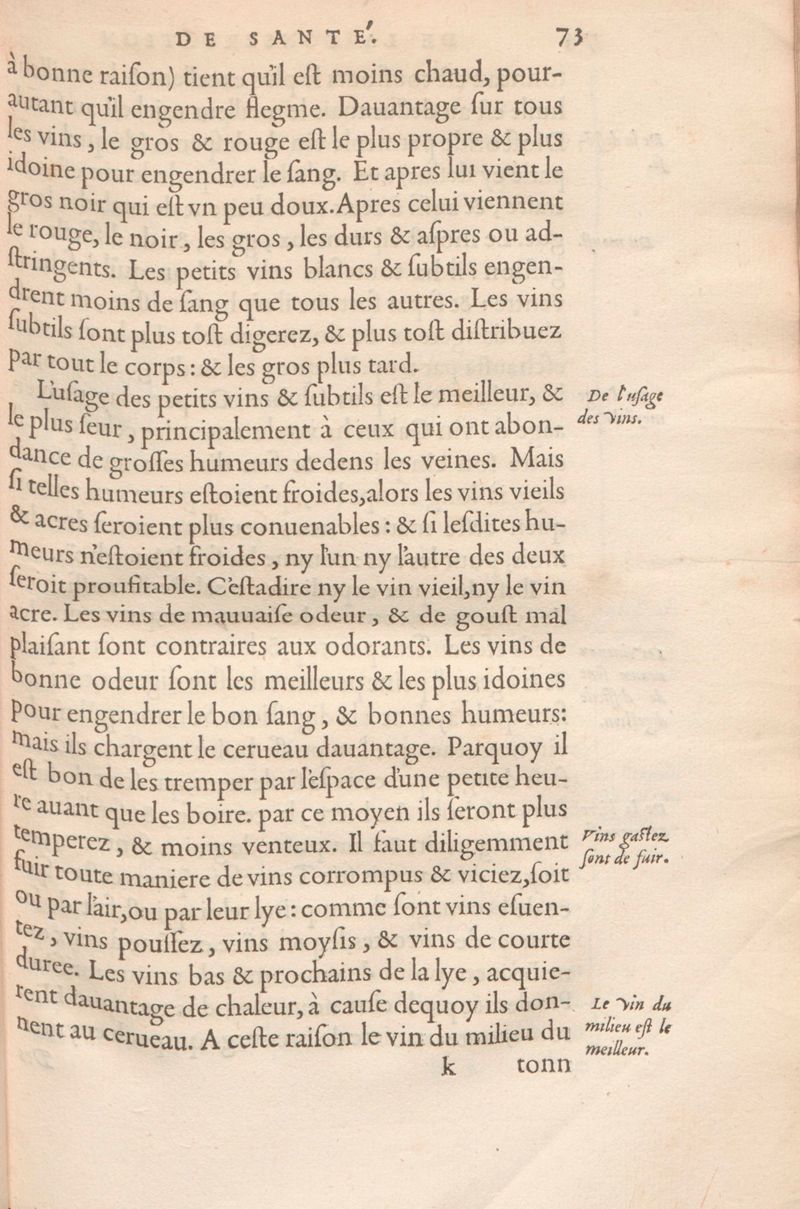 DE SANTÉ. 73
à bonne raiſon) tient qu'il eſt moins chaud, pour-
autant qu'il engendre flegme. Dauantage ſur tous
les vins, le gros & rouge eſt le plus propre & plus
idoine pour engendrer le ſang. Et apres lui vient le
gros noir qui eſt vn peu doux. Apres celui viennent
le rouge, le noir, les gros, les durs & aſpres ou ad-
ſtringents. Les petits vins blancs & ſubtils engen-
drent moins de ſang que tous les autres. Les vins
ſubtils ſont plus toſt digerez, & plus toſt diſtribuez
par tout le corps: & les gros plus tard.
L'uſage des petits vins & ſubtils eſt le meilleur, &
De l'uſage
le plus ſeur, principalement à ceux qui ont abon-
des vins.
dance de groſſes humeurs dedens les veines. Mais
ſi telles humeurs eſtoient froides, alors les vins vieils
& acres ſeroient plus conuenables: & ſi leſdites hu-
meurs n'eſtoient froides, ny l'un ny l'autre des deux
ſeroit proufitable. C'eſtadire ny le vin vieil, ny le vin
acre. Les vins de mauuaiſe odeur, & de gouſt mal
plaiſant ſont contraires aux odorants. Les vins de
bonne odeur ſont les meilleurs & les plus idoines
pour engendrer le bon ſang, & bonnes humeurs:
mais ils chargent le cerueau dauantage. Parquoy il
eſt bon de les tremper par l'eſpace d'une petite heu-
re auant que les boire. par ce moyen ils ſeront plus
temperez, & moins venteux. Il faut diligemment
Vins gaſtez
fuir toute maniere de vins corrompus & viciez, ſoit
ſont de fuir.
ou par l'air, ou par leur lye: comme ſont vins eſuen-
tez, vins pouſſez, vins moyſis, & vins de courte
duree. Les vins bas & prochains de la lye, acquie-
rent dauantage de chaleur, à cauſe dequoy ils don-
Le vin du
nent au cerueau. A ceſte raiſon le vin du milieu du
milieu eſt le
meilleur.
k tonn